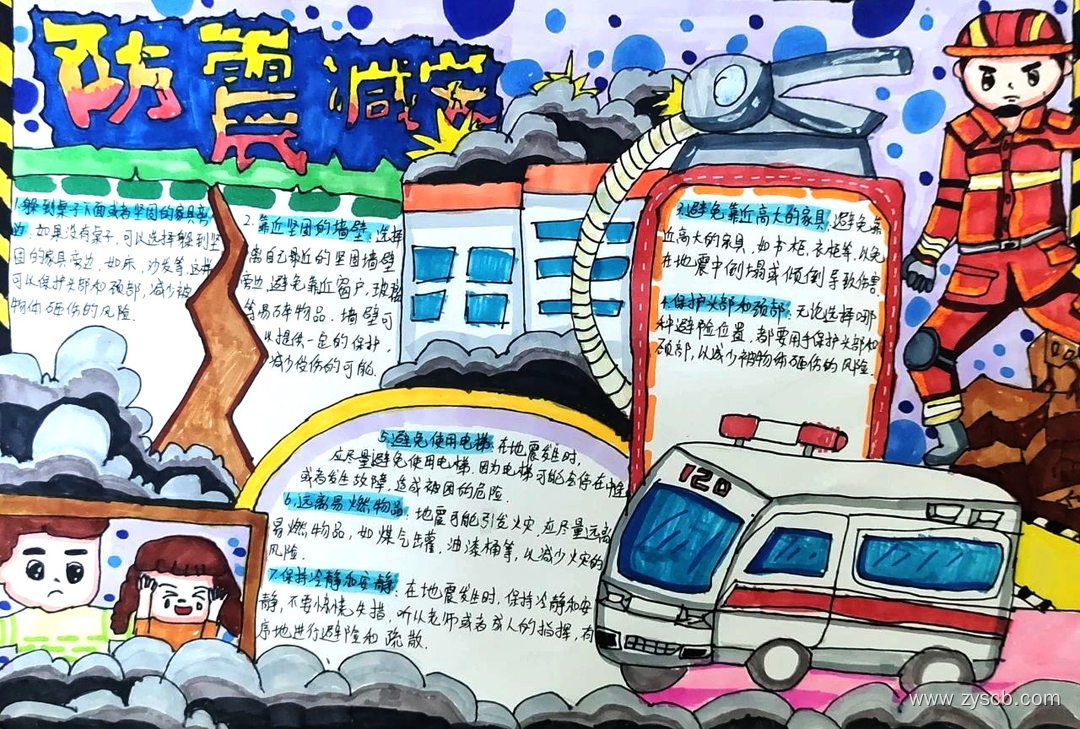 防震减灾
1.躲到桌子下面或者坚固的家具旁
边,如果没有桌子,可以选择躲到坚
固的家具旁边,如床,沙发等,这样
可以保护头部和颈部,减少被
物体砸伤的风险.
2.靠近坚固的墙壁:选择
离自己最近的坚固墙壁
旁边,避免靠近窗户,玻璃
等易碎物品,墙壁可
以提供一定的保护,
减少受伤的可能.
3.避免靠近高大的家具:避免靠
近高大的家具,如书柜,衣柜等,以免
在地震中倒塌或倾倒导致伤害.
4.保护头部和颈部:无论选择哪
种避险位置,都要用手保护头部和
颈部,以减少被物体砸伤的风险.
5.避免使用电梯:在地震发生时,
应尽量避免使用电梯,因为电梯可能会停在中途
或者发生故障,造成被困的危险.
6.远离易燃物品:地震可能引发火灾,应尽量远离
易燃物品,如煤气罐,油漆桶等,以减少火灾的
风险.
7.保持冷静和安静:在地震发生时,保持冷静和安
静,不要惊慌失措,听从老师或者成人的指挥,有
序地进行避险和疏散.
120
www.zyscb.com